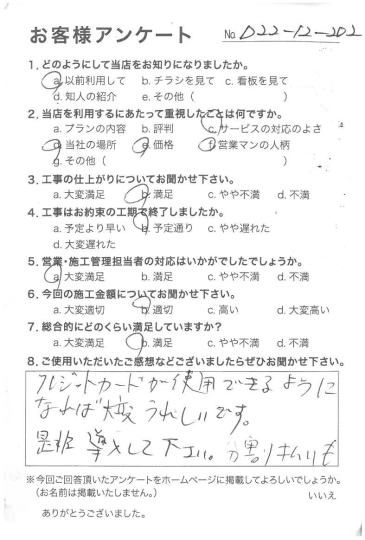 お客様アンケート No. D22-12-202
1. どのようにして当店をお知りになりましたか。
a. 以前利用して b. チラシを見て c. 看板を見て
d. 知人の紹介 e. その他（ ）
2. 当店を利用するにあたって重視したことは何ですか。
a. プランの内容 b. 評判 c. サービスの対応のよさ
d. 当社の場所 e. 価格 f. 営業マンの人柄
g. その他（ ）
3. 工事の仕上がりについてお聞かせ下さい。
a. 大変満足 b. 満足 c. やや不満 d. 不満
4. 工事はお約束の工期で終了しましたか。
a. 予定より早い b. 予定通り c. やや遅れた
d. 大変遅れた
5. 営業・施工管理担当者の対応はいかがでしたでしょうか。
a. 大変満足 b. 満足 c. やや不満 d. 不満
6. 今回の施工金額についてお聞かせ下さい。
a. 大変適切 b. 適切 c. 高い d. 大変高い
7. 総合的にどのくらい満足していますか？
a. 大変満足 b. 満足 c. やや不満 d. 不満
8. ご使用いただいたご感想などございましたらぜひお聞かせ下さい。
クレジットカードが使用できるように
なれば大変うれしいです。
是非導入して下さい。分割払いも
※今回ご回答頂いたアンケートをホームページに掲載してよろしいでしょうか。
（お名前は掲載いたしません。） いいえ
ありがとうございました。